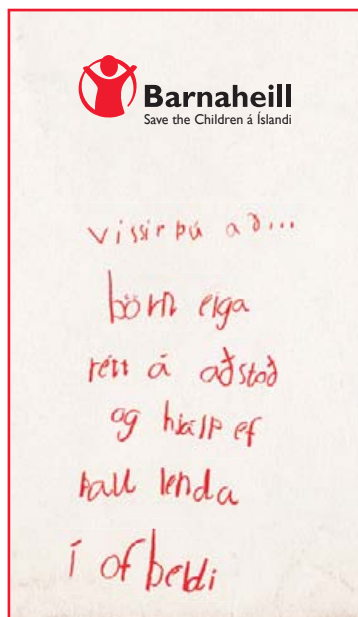 Barnaheill
Save the Children á Íslandi
vissir þú að...
börn eiga
rétt á aðstoð
og hjálp ef
þau lenda
í ofbeldi